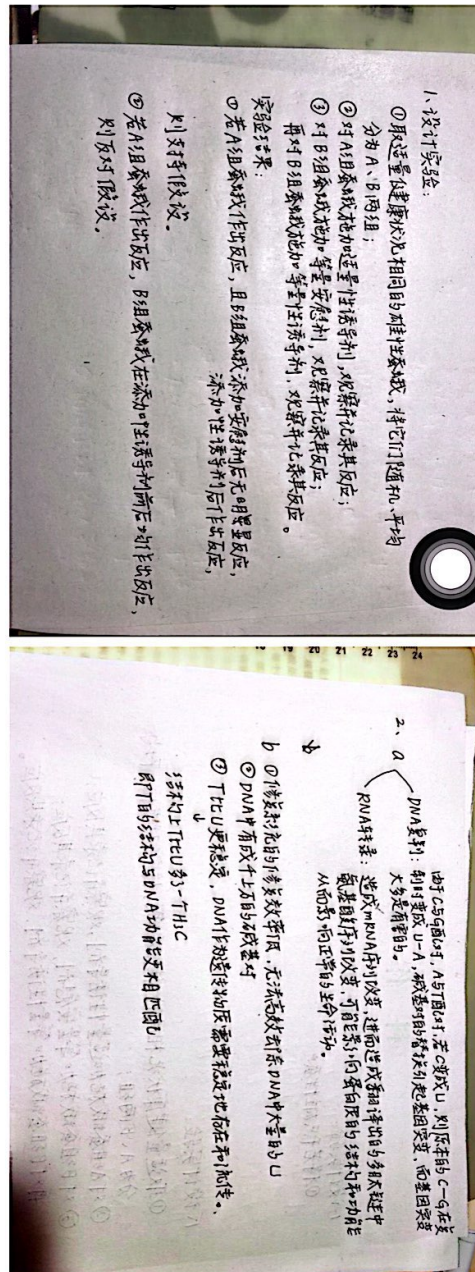 1、设计实验：
①取适量健康状况相同的雄性蚕蛾，将它们随机、平均
分为A、B两组；
②对A组蚕蛾施加适量性诱导剂，观察并记录其反应；
③对B组蚕蛾施加等量安慰剂，观察并记录其反应；
再对B组蚕蛾施加等量性诱导剂，观察并记录其反应。
实验结果：
①若A组蚕蛾作出反应，且B组蚕蛾添加安慰剂后无明显反应，
添加性诱导剂后作出反应，
则支持假设。
②若A组蚕蛾作出反应，B组蚕蛾在添加性诱导剂前后均作出反应，
则反对假设。
18 19 20 21 22 23 24
2、a
DNA复制：由于C与G配对，A与T配对，若C变成U，则原本的C—G在复
制时变成U-A，碱基对的替换引起基因突变，而基因突变
大多是有害的。
RNA转录：造成mRNA序列改变，进而造成翻译出的多肽链中
氨基酸序列改变，可能影响蛋白质的结构和功能
从而影响正常的生命活动。
b
b ①修复系统的修复效率低，无法高效去除DNA中大量的U
②DNA中有成千上万的碱基对
③T比U更稳定，DNA作为遗传物质需要稳定地存在和流传。
↓
结构上T比U多一个H3C
即T的结构与DNA功能更相匹配